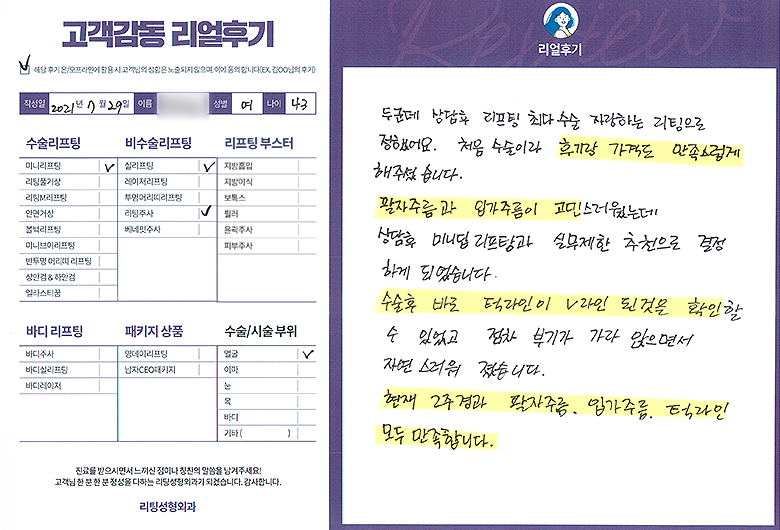 고객감동 리얼후기
해당 후기 온/오프라인에 활용 시 고객님의 성함은 노출되지 않으며, 이에 동의 합니다(EX. 김OO님의 후기)
작성일 2021년 7월 29일 이름 성별 여 나이 43
수술리프팅
미니리프팅
리팅풀거상
리팅M리프팅
안면거상
볼턱리프팅
미니브이리프팅
반투명 머리띠 리프팅
상안검 & 하안검
엘라스티꿈
비수술리프팅
실리프팅
레이저리프팅
투명머리띠리프팅
리팅주사
베네핏주사
리프팅 부스터
지방흡입
지방이식
보톡스
필러
윤곽주사
피부주사
바디 리프팅
바디주사
바디실리프팅
바디레이저
패키지 상품
영데이리프팅
남자CEO패키지
수술/시술 부위
얼굴
이마
눈
목
바디
기타 ( )
진료를 받으시면서 느끼신 점이나 칭찬의 말씀을 남겨주세요!
고객님 한 분 한 분 정성을 다하는 리팅성형외과가 되겠습니다. 감사합니다.
리팅성형외과
Review
리얼후기
두군데 상담후 리프팅 최다수술 자랑하는 리팅으로
정했어요. 처음 수술이라 후기랑 가격도 만족스럽게
해주셨습니다.
팔자주름과 입가주름이 고민스러웠는데
상담후 미니딥리프팅과 실무제한 추천으로 결정
하게 되었습니다.
수술후 바로 턱라인이 V라인 된것을 확인할
수 있었고 점차 부기가 가라 앉으면서
자연스러워 졌습니다.
현재 2주경과 팔자주름, 입가주름, 턱라인
모두 만족합니다.